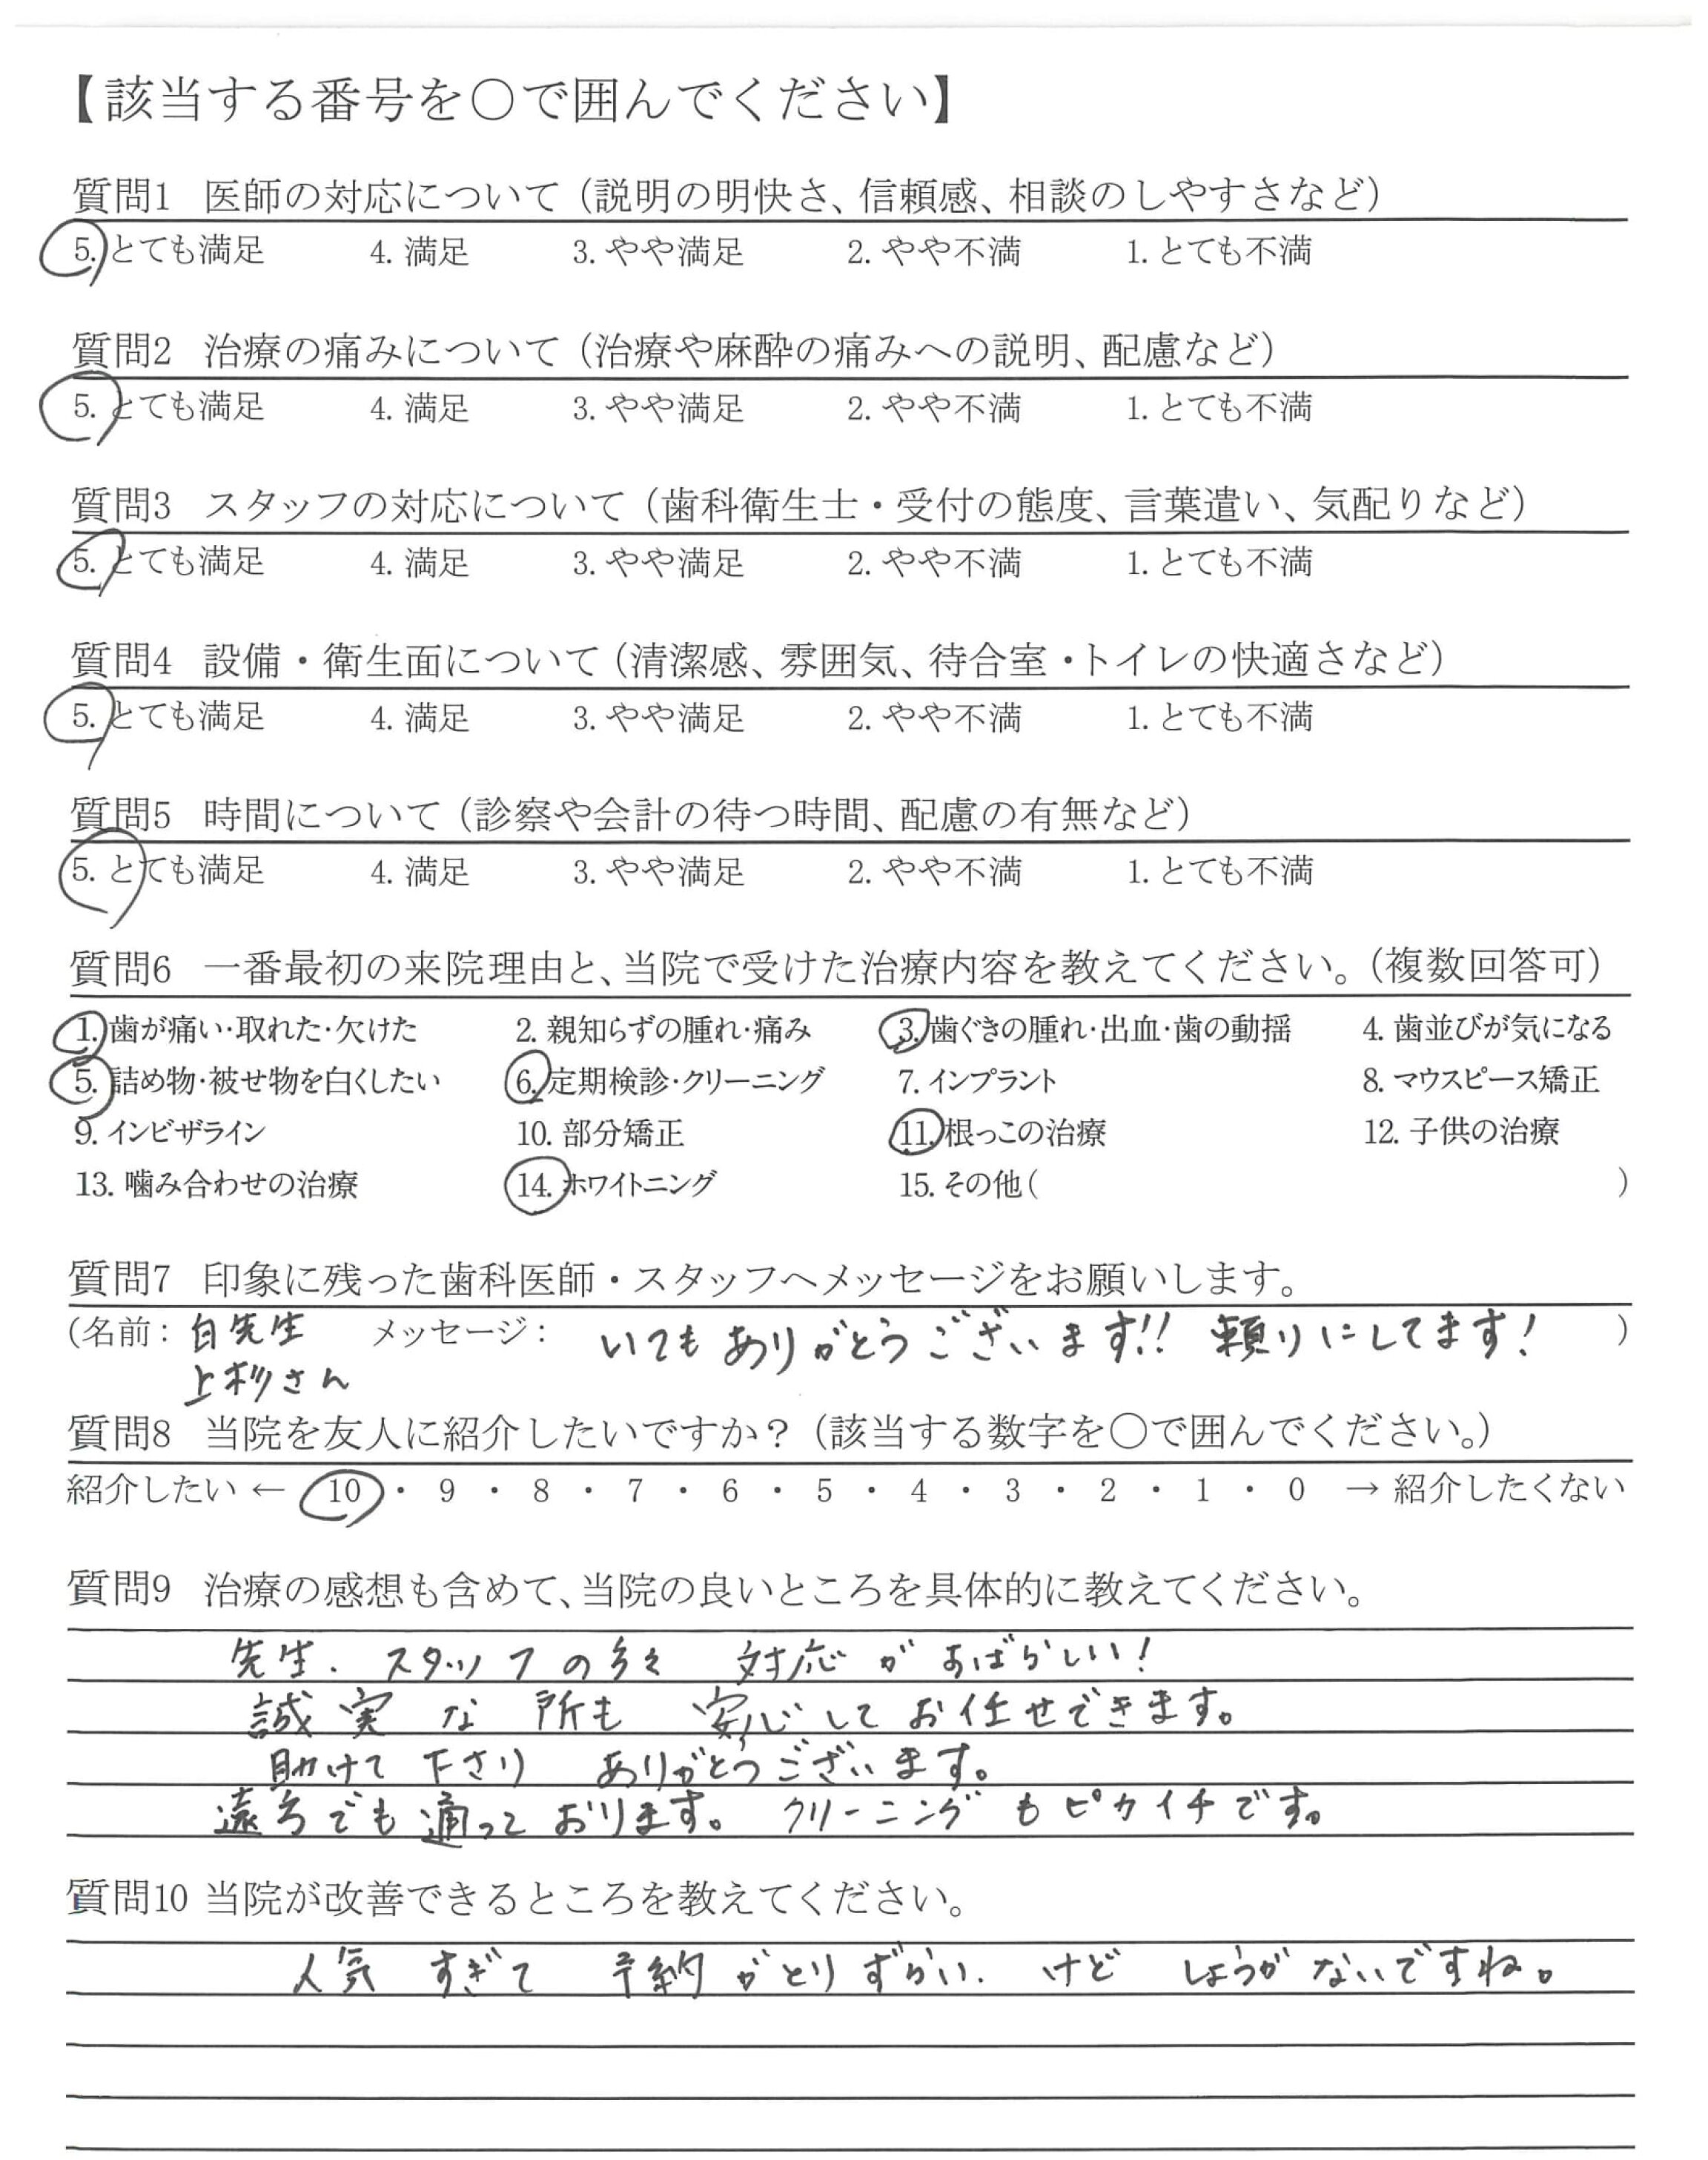 【該当する番号を○で囲んでください】
質問1 医師の対応について（説明の明快さ、信頼感、相談のしやすさなど）
5. とても満足 4. 満足 3. やや満足 2. やや不満 1. とても不満
質問2 治療の痛みについて（治療や麻酔の痛みへの説明、配慮など）
5. とても満足 4. 満足 3. やや満足 2. やや不満 1. とても不満
質問3 スタッフの対応について（歯科衛生士・受付の態度、言葉遣い、気配りなど）
5. とても満足 4. 満足 3. やや満足 2. やや不満 1. とても不満
質問4 設備・衛生面について（清潔感、雰囲気、待合室・トイレの快適さなど）
5. とても満足 4. 満足 3. やや満足 2. やや不満 1. とても不満
質問5 時間について（診察や会計の待つ時間、配慮の有無など）
5. とても満足 4. 満足 3. やや満足 2. やや不満 1. とても不満
質問6 一番最初の来院理由と、当院で受けた治療内容を教えてください。（複数回答可）
1. 歯が痛い・取れた・欠けた 2. 親知らずの腫れ・痛み 3. 歯ぐきの腫れ・出血・歯の動揺 4. 歯並びが気になる
5. 詰め物・被せ物を白くしたい 6. 定期検診・クリーニング 7. インプラント 8. マウスピース矯正
9. インビザライン 10. 部分矯正 11. 根っこの治療 12. 子供の治療
13. 噛み合わせの治療 14. ホワイトニング 15. その他（ ）
質問7 印象に残った歯科医師・スタッフへメッセージをお願いします。
（名前： 先生 メッセージ： いつもありがとうございます!! 頼りにしてます! ）
上杉さん
質問8 当院を友人に紹介したいですか？（該当する数字を○で囲んでください。）
紹介したい ← 10 ・ 9 ・ 8 ・ 7 ・ 6 ・ 5 ・ 4 ・ 3 ・ 2 ・ 1 ・ 0 → 紹介したくない
質問9 治療の感想も含めて、当院の良いところを具体的に教えてください。
先生、スタッフの方々 対応がすばらしい!
誠実な所も 安心してお任せできます。
助けて下さり ありがとうございます。
遠方でも通っております。クリーニングもピカイチです。
質問10 当院が改善できるところを教えてください。
人気すぎて 予約がとりずらい、けど しょうがないですね。